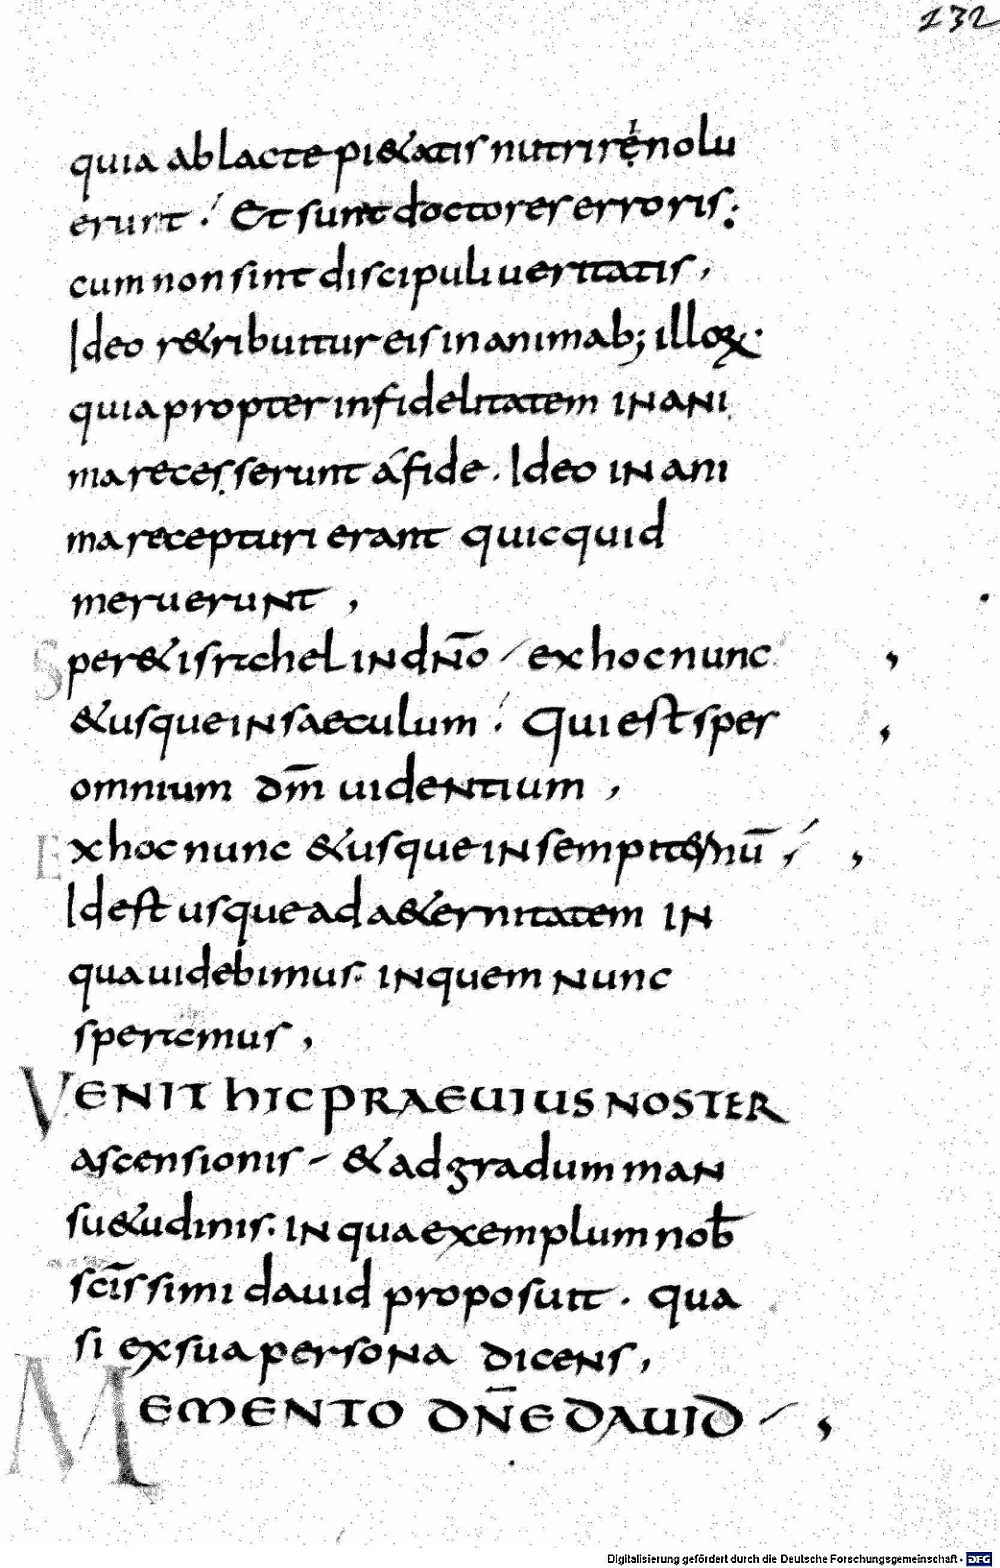 132
quia ab lacte pi&atis nutrirę nolu
erunt. Et sunt doctores erroris.
cum non sint discipuli ueritatis,
Ideo r&ribuitur eis in animab; illoꝝ.
quia propter infidelitatem IN ANI
ma recesserunt á fide. Ideo IN ani
ma recepturi erant quicquid
meruerunt,
Sper& isrʜel IN dn̄o / ex hoc nunc
& usque IN saeculum. Qui est spes
omnium dm̄ uidentium,
Ex hoc nunc & usque IN sempiternū,
Id est usque ad a&ernitatem IN
qua uidebimus. IN quem nunc
speremus,
VENIT hIC PRAEUIUS NOSTER
ascensionis - & ad gradum man
su&udinis. IN qua exemplum nob̄
sc̄issimi dauid proposuit. qua
si ex sua persona dicens,
MEMENTO DN̄E DAUID /,
Digitalisierung gefördert durch die Deutsche Forschungsgemeinschaft - DFG